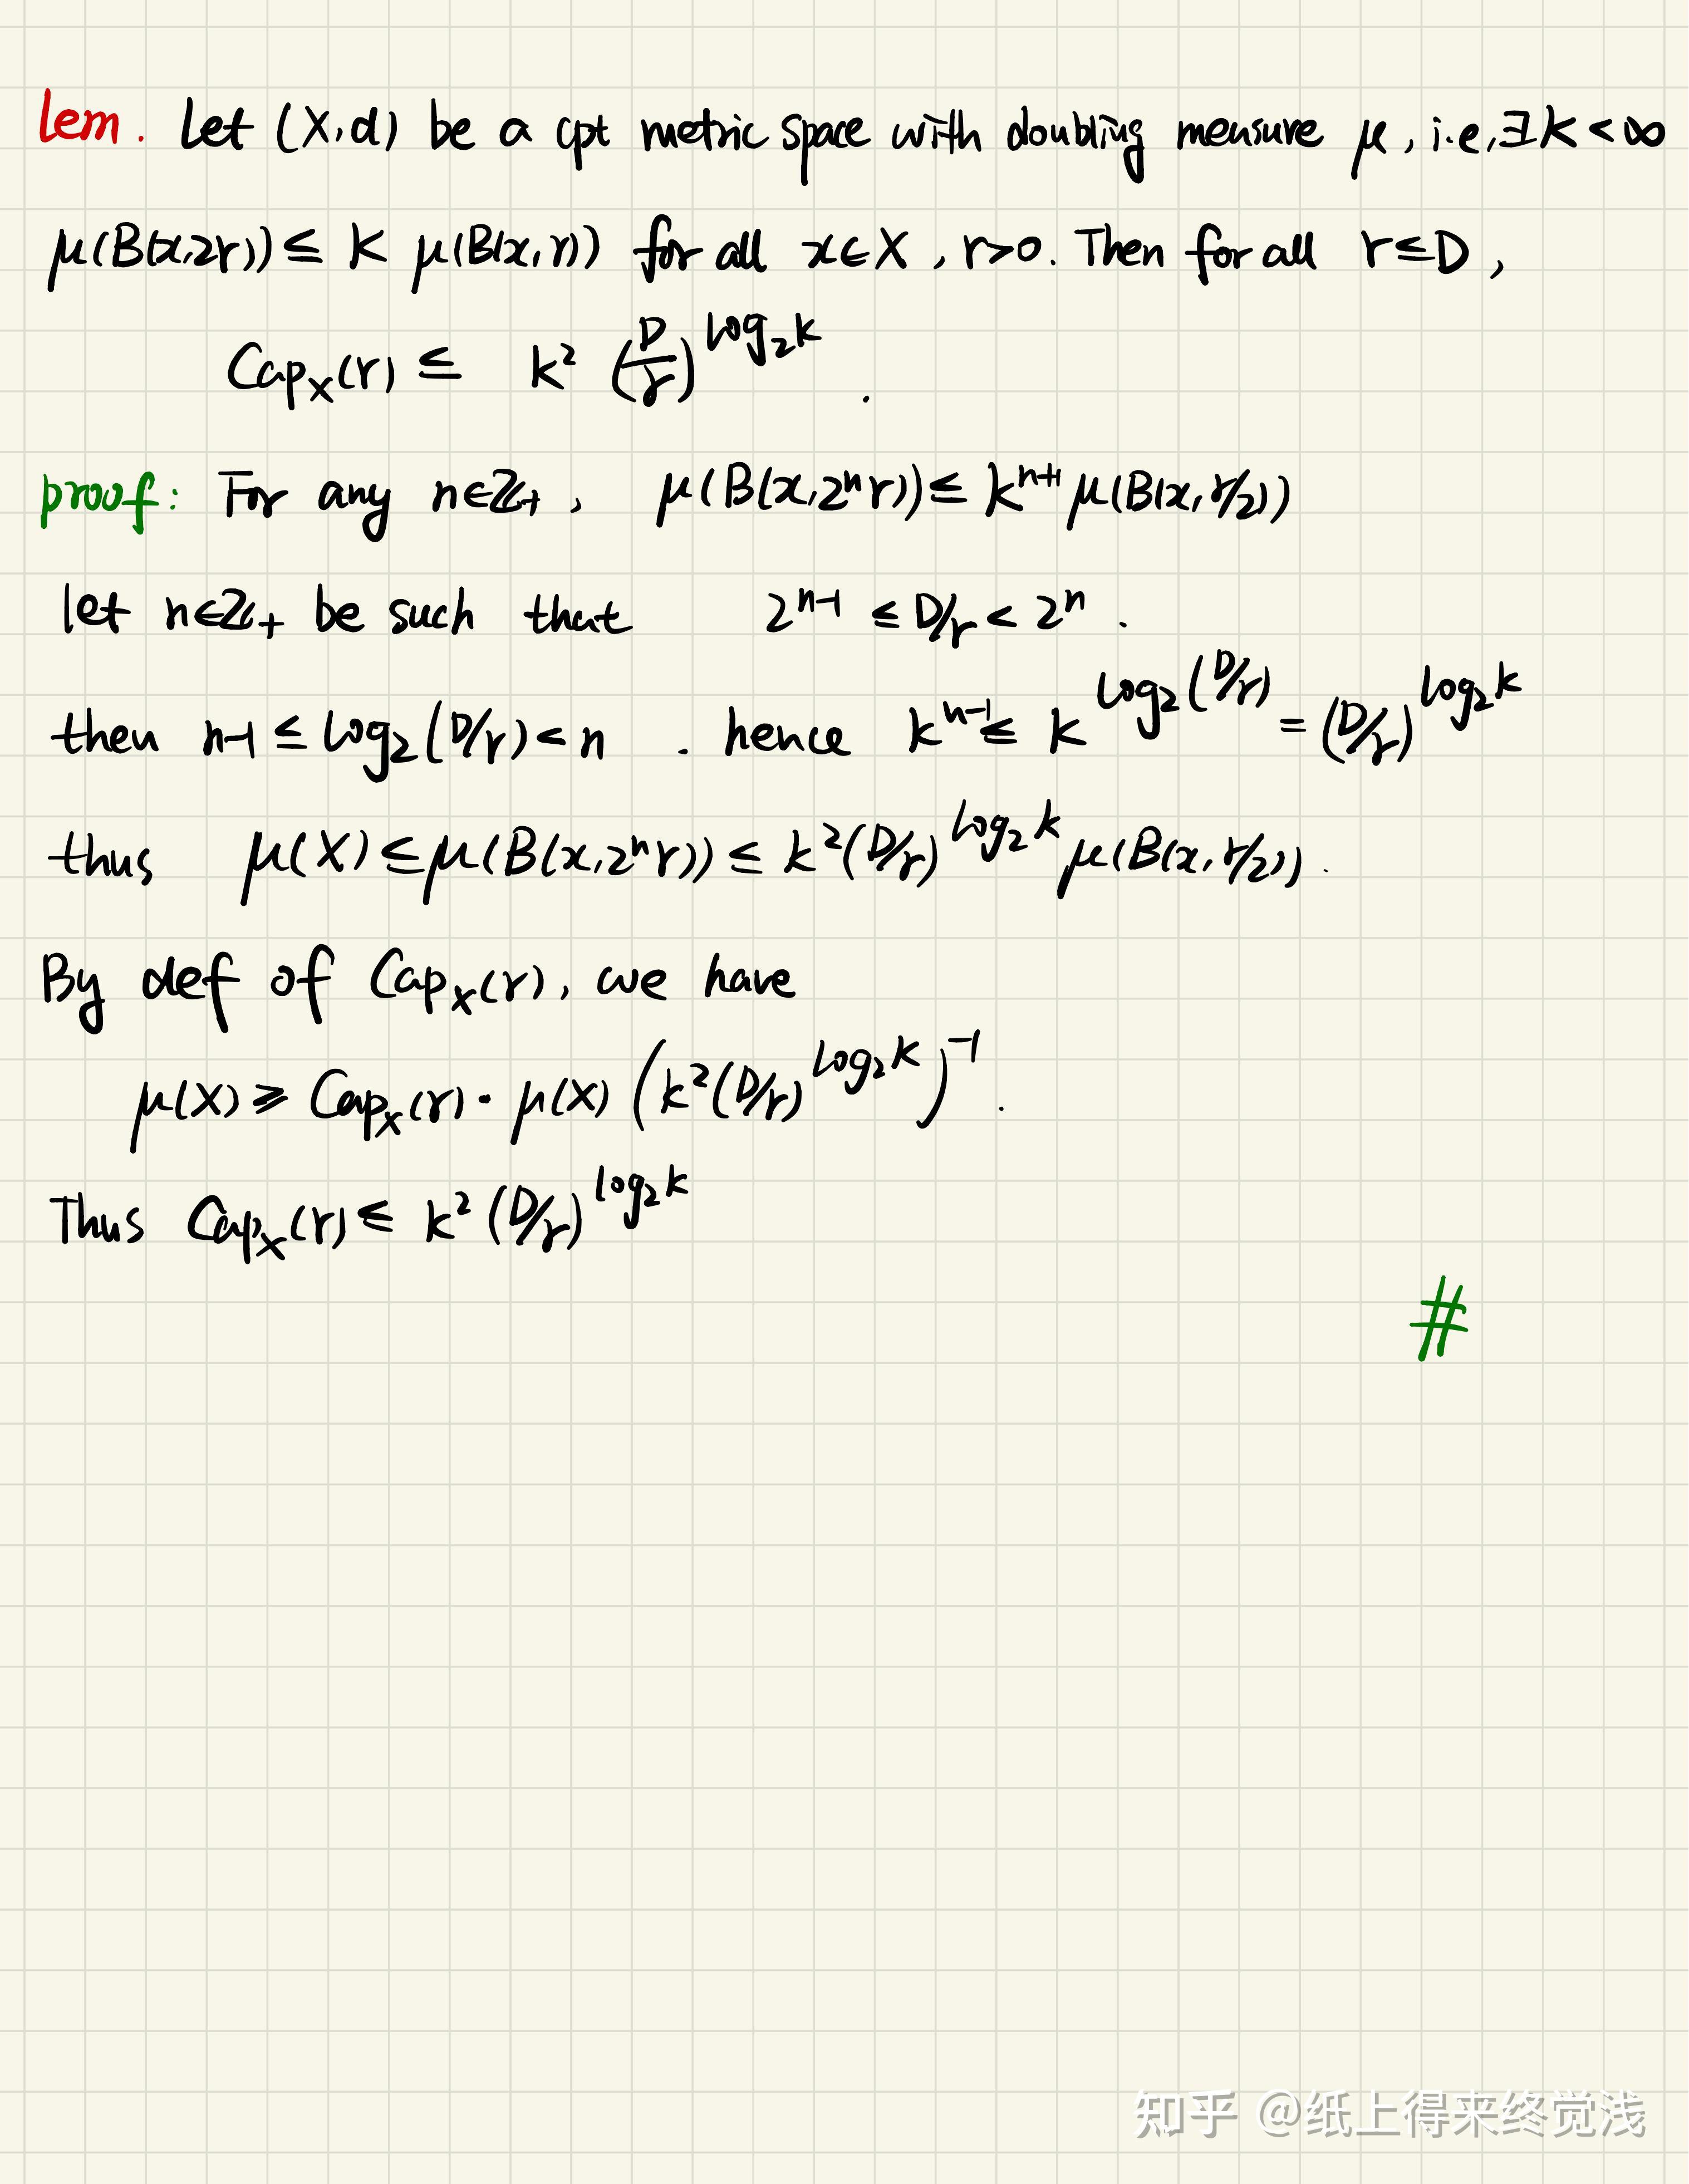 lem. Let (X,d) be a cpt metric space with doubling measure μ, i.e, ∃K<∞
μ(B(x,2r)) ≤ K μ(B(x,r)) for all x∈X, r>0. Then for all r≤D,
Cap_X(r) ≤ K² (D/r)^{log₂K}.
proof: For any n∈ℤ₊, μ(B(x,2ⁿr)) ≤ K^{n+1} μ(B(x,r/2))
let n∈ℤ₊ be such that 2^{n-1} ≤ D/r < 2ⁿ.
then n-1 ≤ log₂(D/r) < n. hence K^{n-1} ≤ K^{log₂(D/r)} = (D/r)^{log₂K}
thus μ(X) ≤ μ(B(x,2ⁿr)) ≤ K²(D/r)^{log₂K} μ(B(x,r/2)).
By def of Cap_X(r), we have
μ(X) ≥ Cap_X(r)·μ(X) (K²(D/r)^{log₂K})^{-1}.
Thus Cap_X(r) ≤ K² (D/r)^{log₂K}
#
知乎 @纸上得来终觉浅